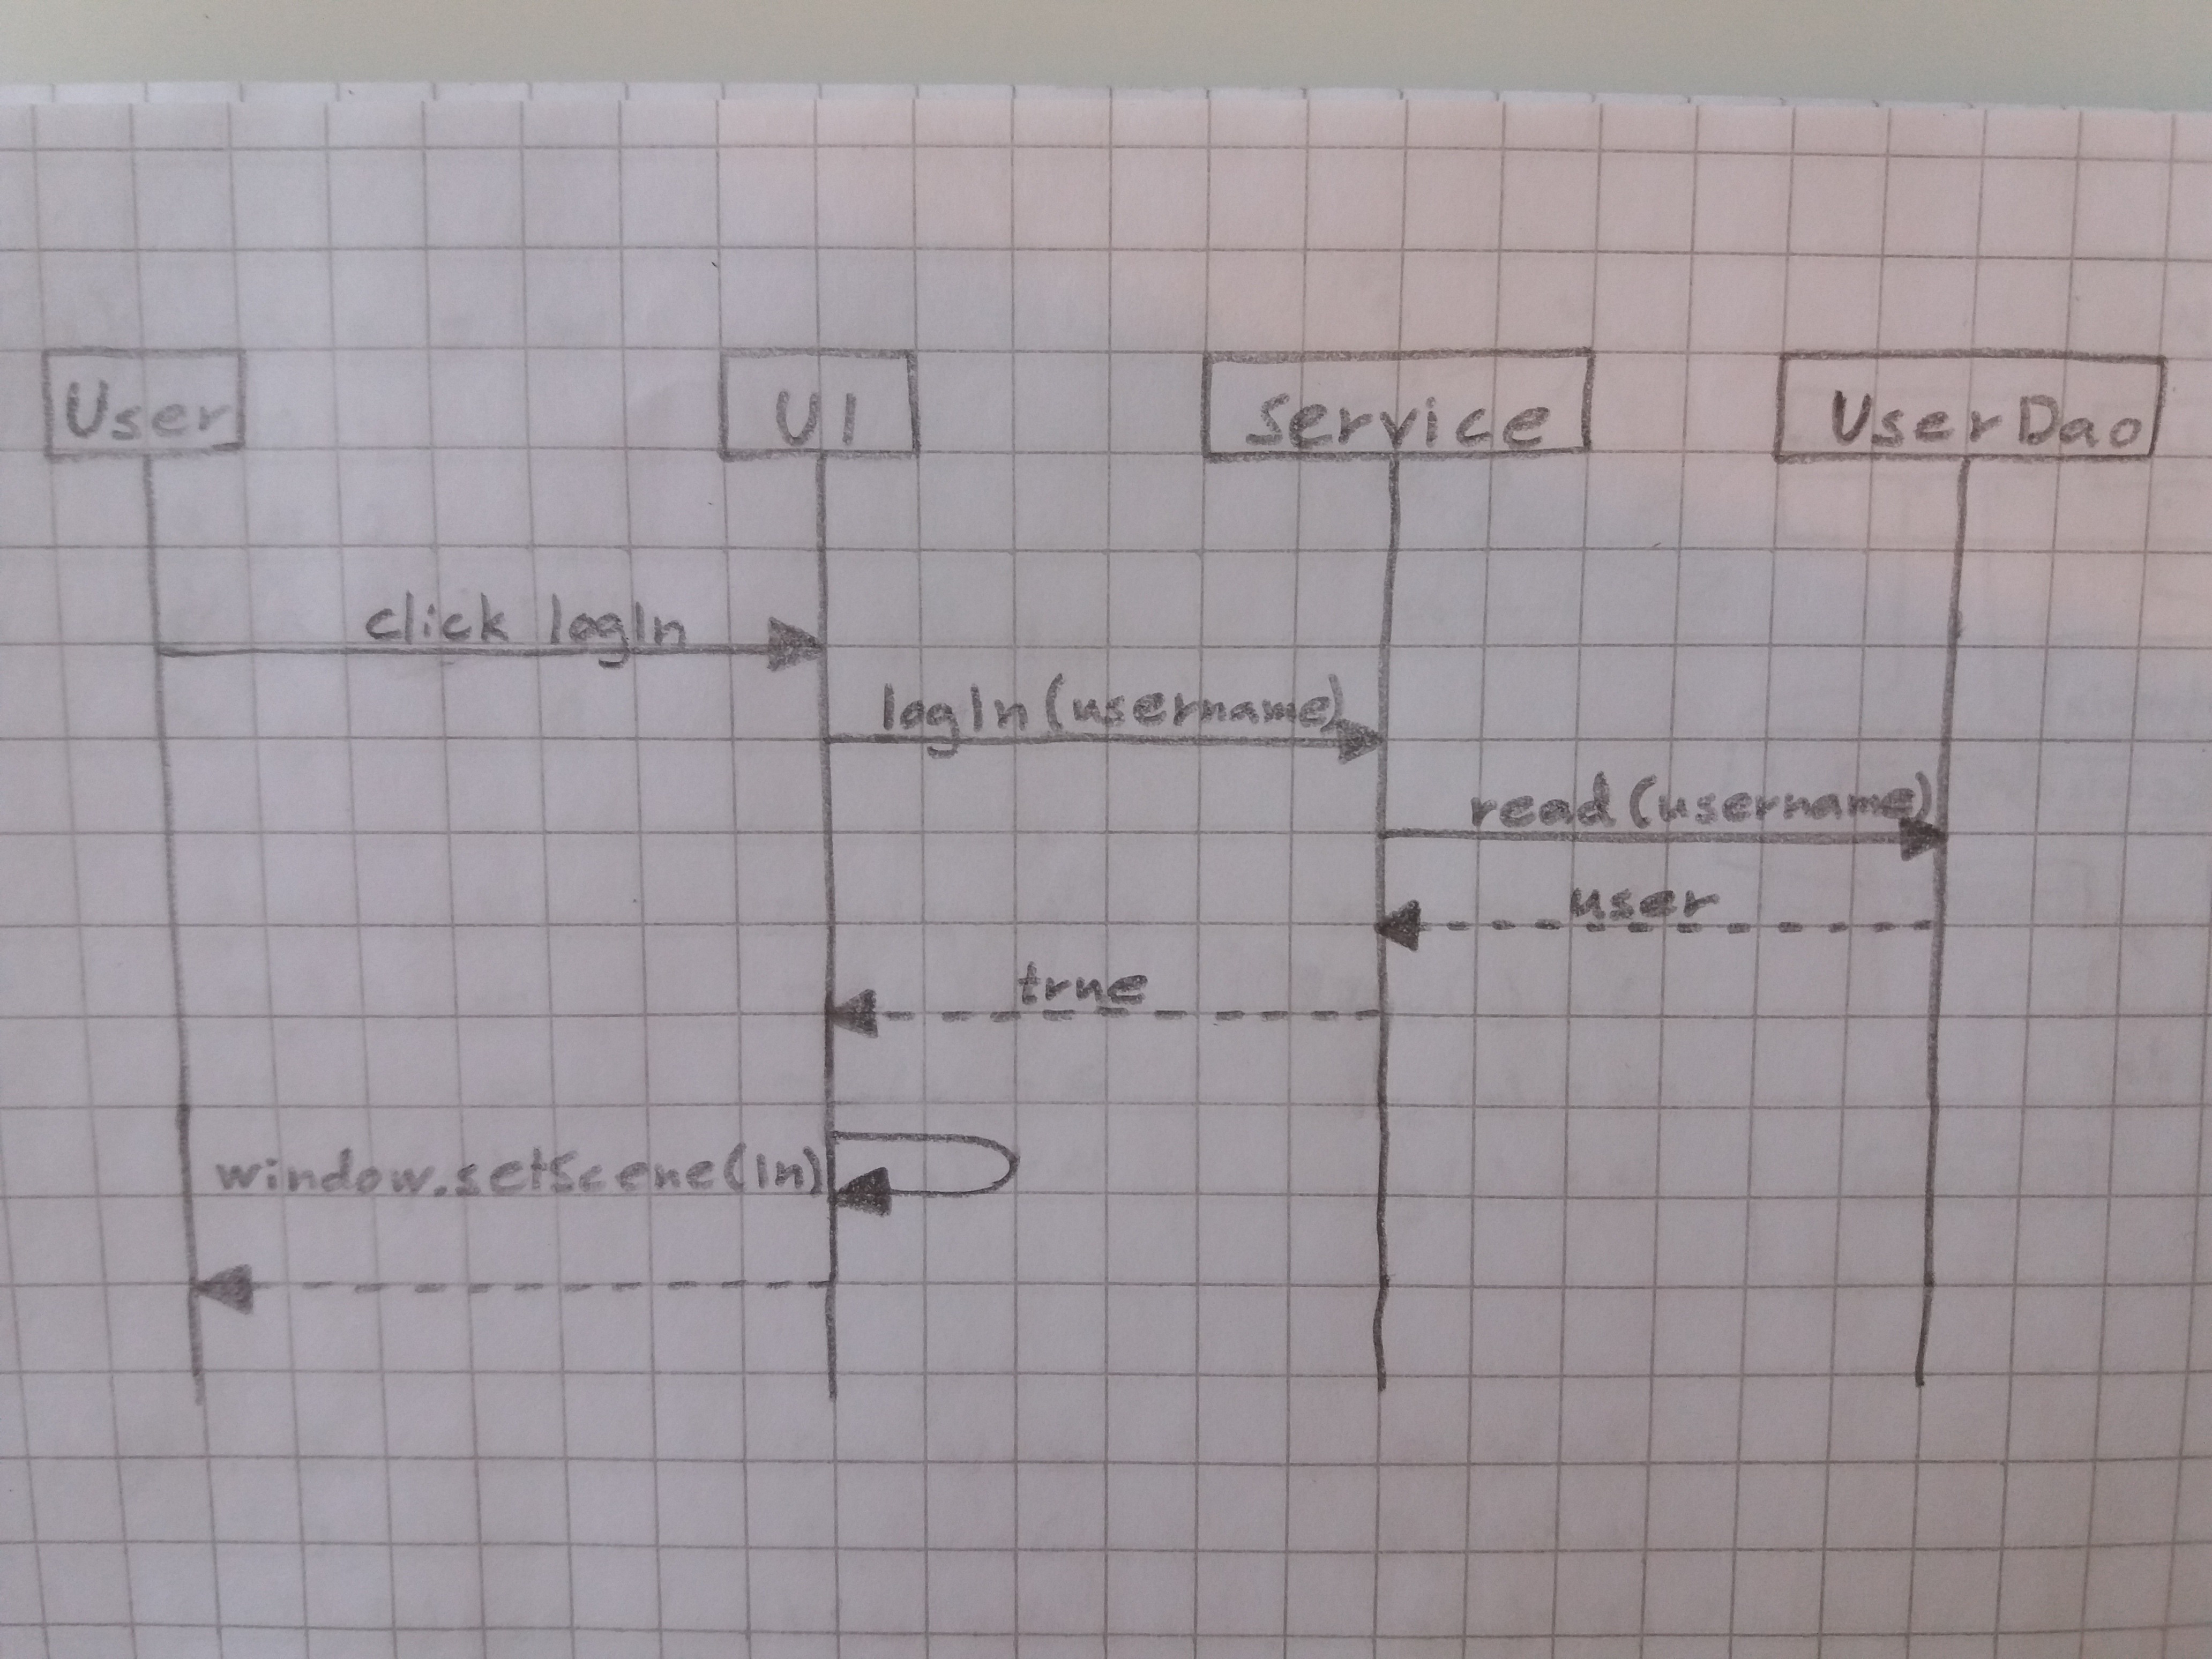 User
UI
Service
UserDao
click logIn
logIn(username)
read(username)
user
true
window.setScene(In)